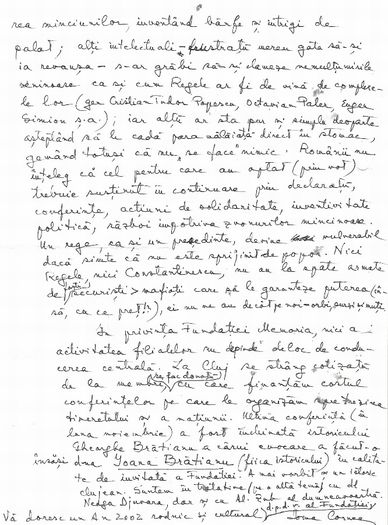 rea minciunilor, inventând bârfe și intrigi de
palat; alți intelectuali – frustrați mereu gata să-și
ia revanșa – s-ar grăbi să-și clameze nemulțumirile
veninoase ca și cum Regele ar fi de vină de complexe-
le lor (gen Cristian Tudor Popescu, Octavian Paler, Eugen
Simion ș.a.); iar alții ar sta pur și simplu deoparte
așteptând să le cadă para mălăiață direct în stomac,
gemând totuși că nu „se face” nimic. Românii nu
înțeleg că cel pentru care au optat (prin vot)
trebuie susținut în continuare prin declarații,
conferințe, acțiuni de solidaritate, inventivitate
politică, război împotriva zvonurilor mincinoase.
Un rege, ca și un președinte, devine vulnerabil
dacă simte că nu este sprijinit de popor. Nici
Regele, nici Constantinescu, nu au la spate armate
de securiști > mafioți care să le garanteze puterea (în-
să, cu ce preț!!), ei nu ne au decât pe noi
În privința Fundației Memoria, nici a
activitatea filialelor nu depinde deloc de condu-
cerea centrală. La Cluj se strâng cotizații
de la membri cu care finanțăm costul
conferințelor pe care le organizăm spre trezirea
tineretului și a națiunii. Ultima conferință (în
luna noiembrie) a fost închinată istoricului
Gheorghe Brătianu a cărui evocare a făcut-o
însăși dna Ioana Brătianu (fiica istoricului) în calita-
te de invitată a Fundației. A mai vorbit și un istoric
clujean. Suntem în tratative (pe o altă temă) cu dl.
Neagu Djuvara, dar și cu Al. Zub al dumneavoastră.
d.p.d.v. al Fundației
Vă doresc un An 2002 rodnic și cultural